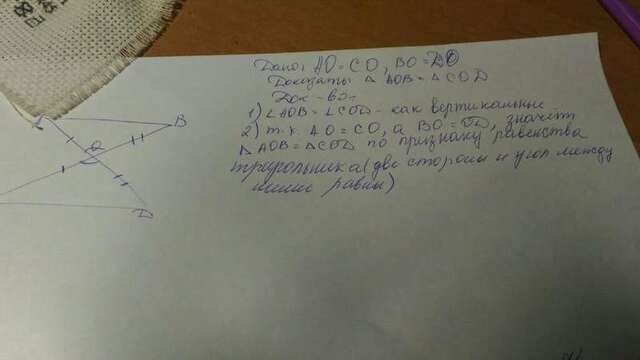 Дано: AO = CO, BO = DO
Доказать: Δ AOB = Δ COD
Док-во:
1) ∠AOB = ∠COD - как вертикальные
2) т.к. AO = CO, а BO = OD, значит
Δ AOB = Δ COD по признаку равенства
треугольника (две стороны и угол между
ними равны)
B
O
D